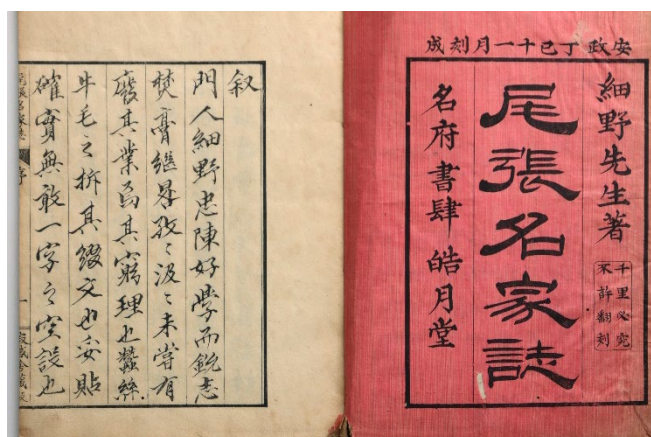 安政丁巳十一月刻成
細野先生著
千里必究
不許翻刻
尾張名家誌
名府書肆 皓月堂
叙
門人細野忠陳好學而鋭志
焚膏繼晷孜〻汲〻未嘗有
廢其業爲其窮理也蠶絲
牛毛之析其綴文也妥貼
確實無敢一字之空設也
序
一